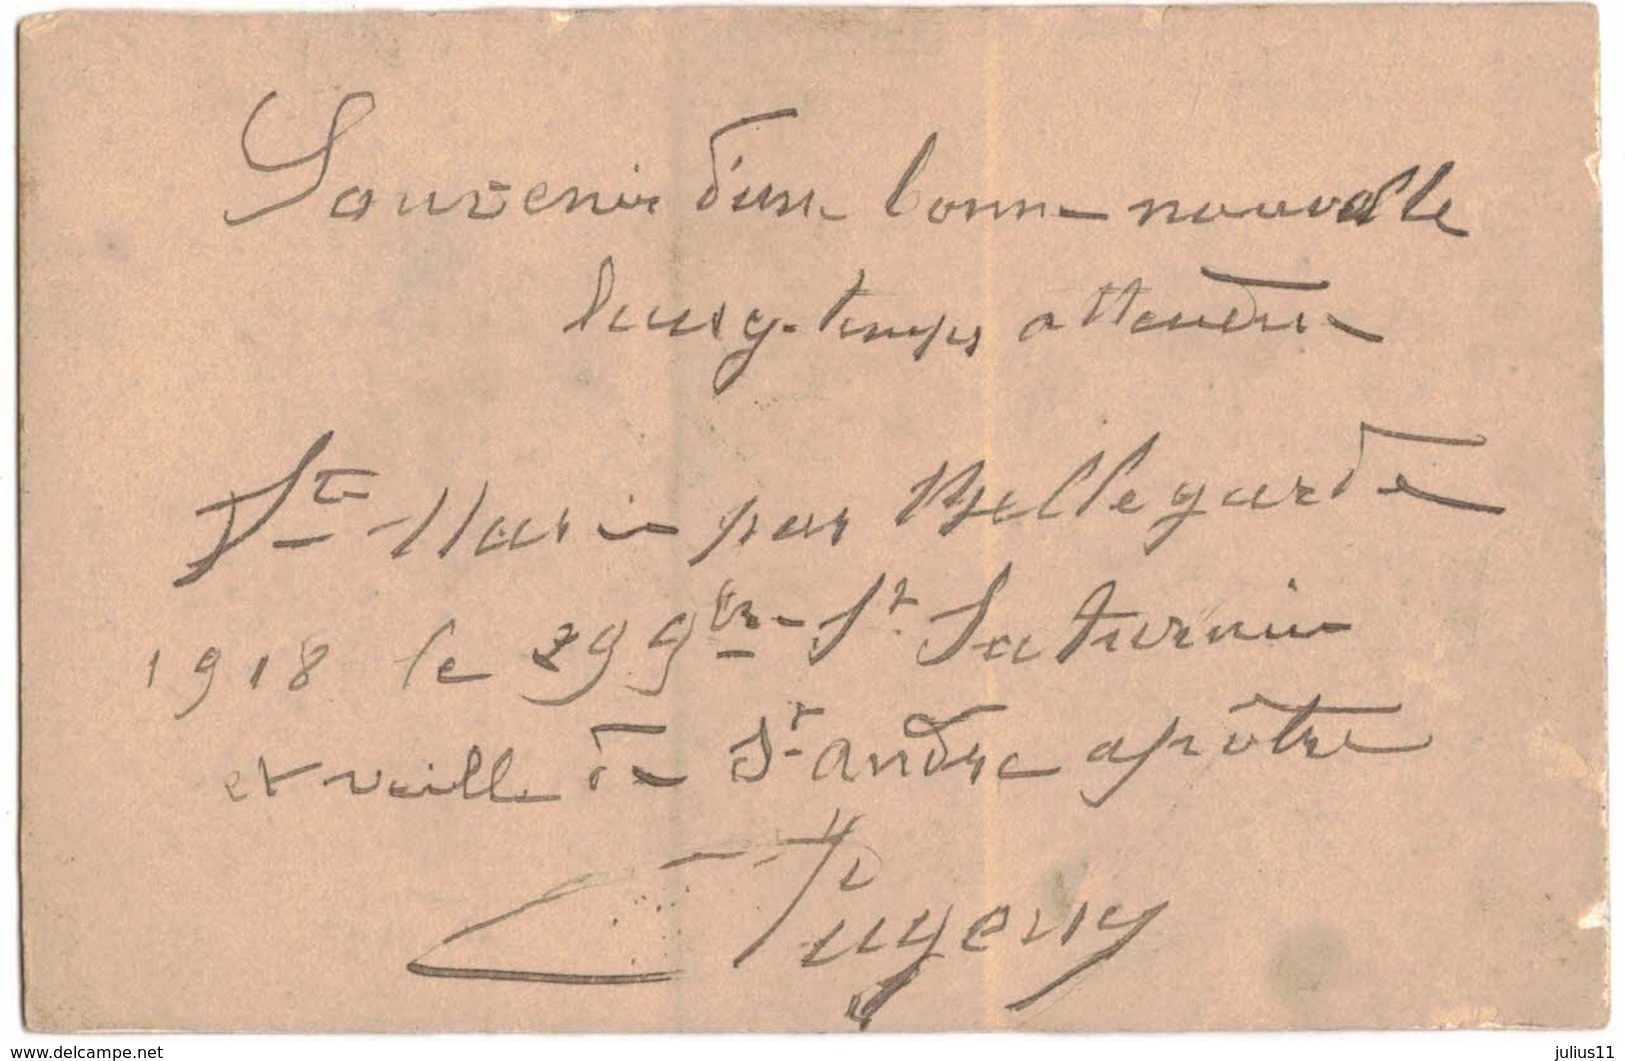 Souvenir d'une bonne nouvelle
longtemps attendue
Ste Marie par Bellegarde
1918 le 29 9bre St Saturnin
et veille de St andre apôtre
www.delcampe.net
julius11